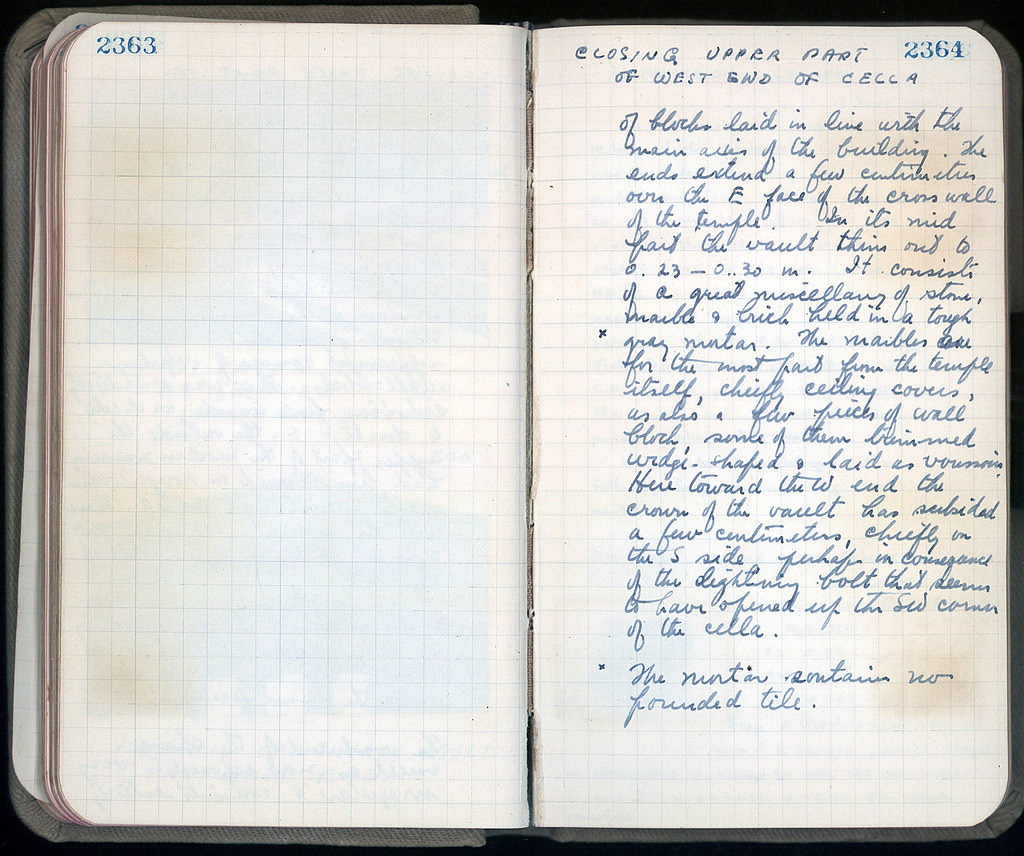 2363
2364
CLOSING UPPER PART
OF WEST END OF CELLA
of blocks laid in line with the
main axis of the building. The
ends extend a few centimetres
over the E face of the cross wall
of the temple. In its mid
part the vault thins out to
0.23 – 0.30 m. It consists
of a great miscellany of stone,
marble & brick held in a tough
* gray mortar. The marbles are
for the most part from the temple
itself, chiefly ceiling covers,
as also a few pieces of wall
block some of them trimmed
wedge-shaped & laid as voussoirs
Here toward the W end the
crown of the vault has subsided
a few centimeters, chiefly on
the S side, perhaps in consequence
of the lightning bolt that seems
to have opened up the SW corner
of the cella.
* The mortar contains no
pounded tile.